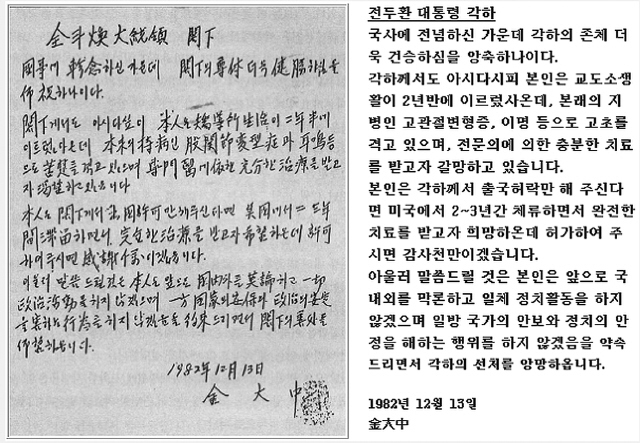 全斗煥 大統領 閣下
國事에 軫念하신 가운데 閣下의 尊体 더욱 健勝하심을
仰祝하나이다.
閣下께서도 아시다싶이 本人은 矯導所生活이 二年半에
이르렀아온데 本来의 持病인 股関節変型症과 耳鳴等
으로 苦楚를 격고 있으며 専門醫에 依한 充分한 治療를 받고
자 渴望하고 있읍니다
本人은 閣下께서 出國許可만 해주신다면 美國에서 二~三年
間 滯留하면서 完全한 治療를 받고자 希望하온데 許可
하여주시면 感謝千萬이겠읍니다.
아울러 말씀드릴것은 本人은 앞으로 國内外를 莫論하고 一切
政治活動을 하지 않겠으며 一方 國家의 安保와 政治의 安定
을 害하는 行為를 하지 않겠음을 約束드리면서 閣下의 善處를
仰望하옵니다.
1982年 12月 13日
金 大 中
전두환 대통령 각하
국사에 전념하신 가운데 각하의 존체 더
욱 건승하심을 앙축하나이다.
각하께서도 아시다시피 본인은 교도소생
활이 2년반에 이르렀사온데, 본래의 지
병인 고관절변형증, 이명 등으로 고초를
격고 있으며, 전문의에 의한 충분한 치료
를 받고자 갈망하고 있습니다.
본인은 각하께서 출국허락만 해 주신다
면 미국에서 2~3년간 체류하면서 완전한
치료를 받고자 희망하온데 허가하여 주
시면 감사천만이겠습니다.
아울러 말씀드릴 것은 본인은 앞으로 국
내외를 막론하고 일체 정치활동을 하지
않겠으며 일방 국가의 안보와 정치의 안
정을 해하는 행위를 하지 않겠음을 약속
드리면서 각하의 선처를 앙망하옵니다.
1982년 12월 13일
金大中